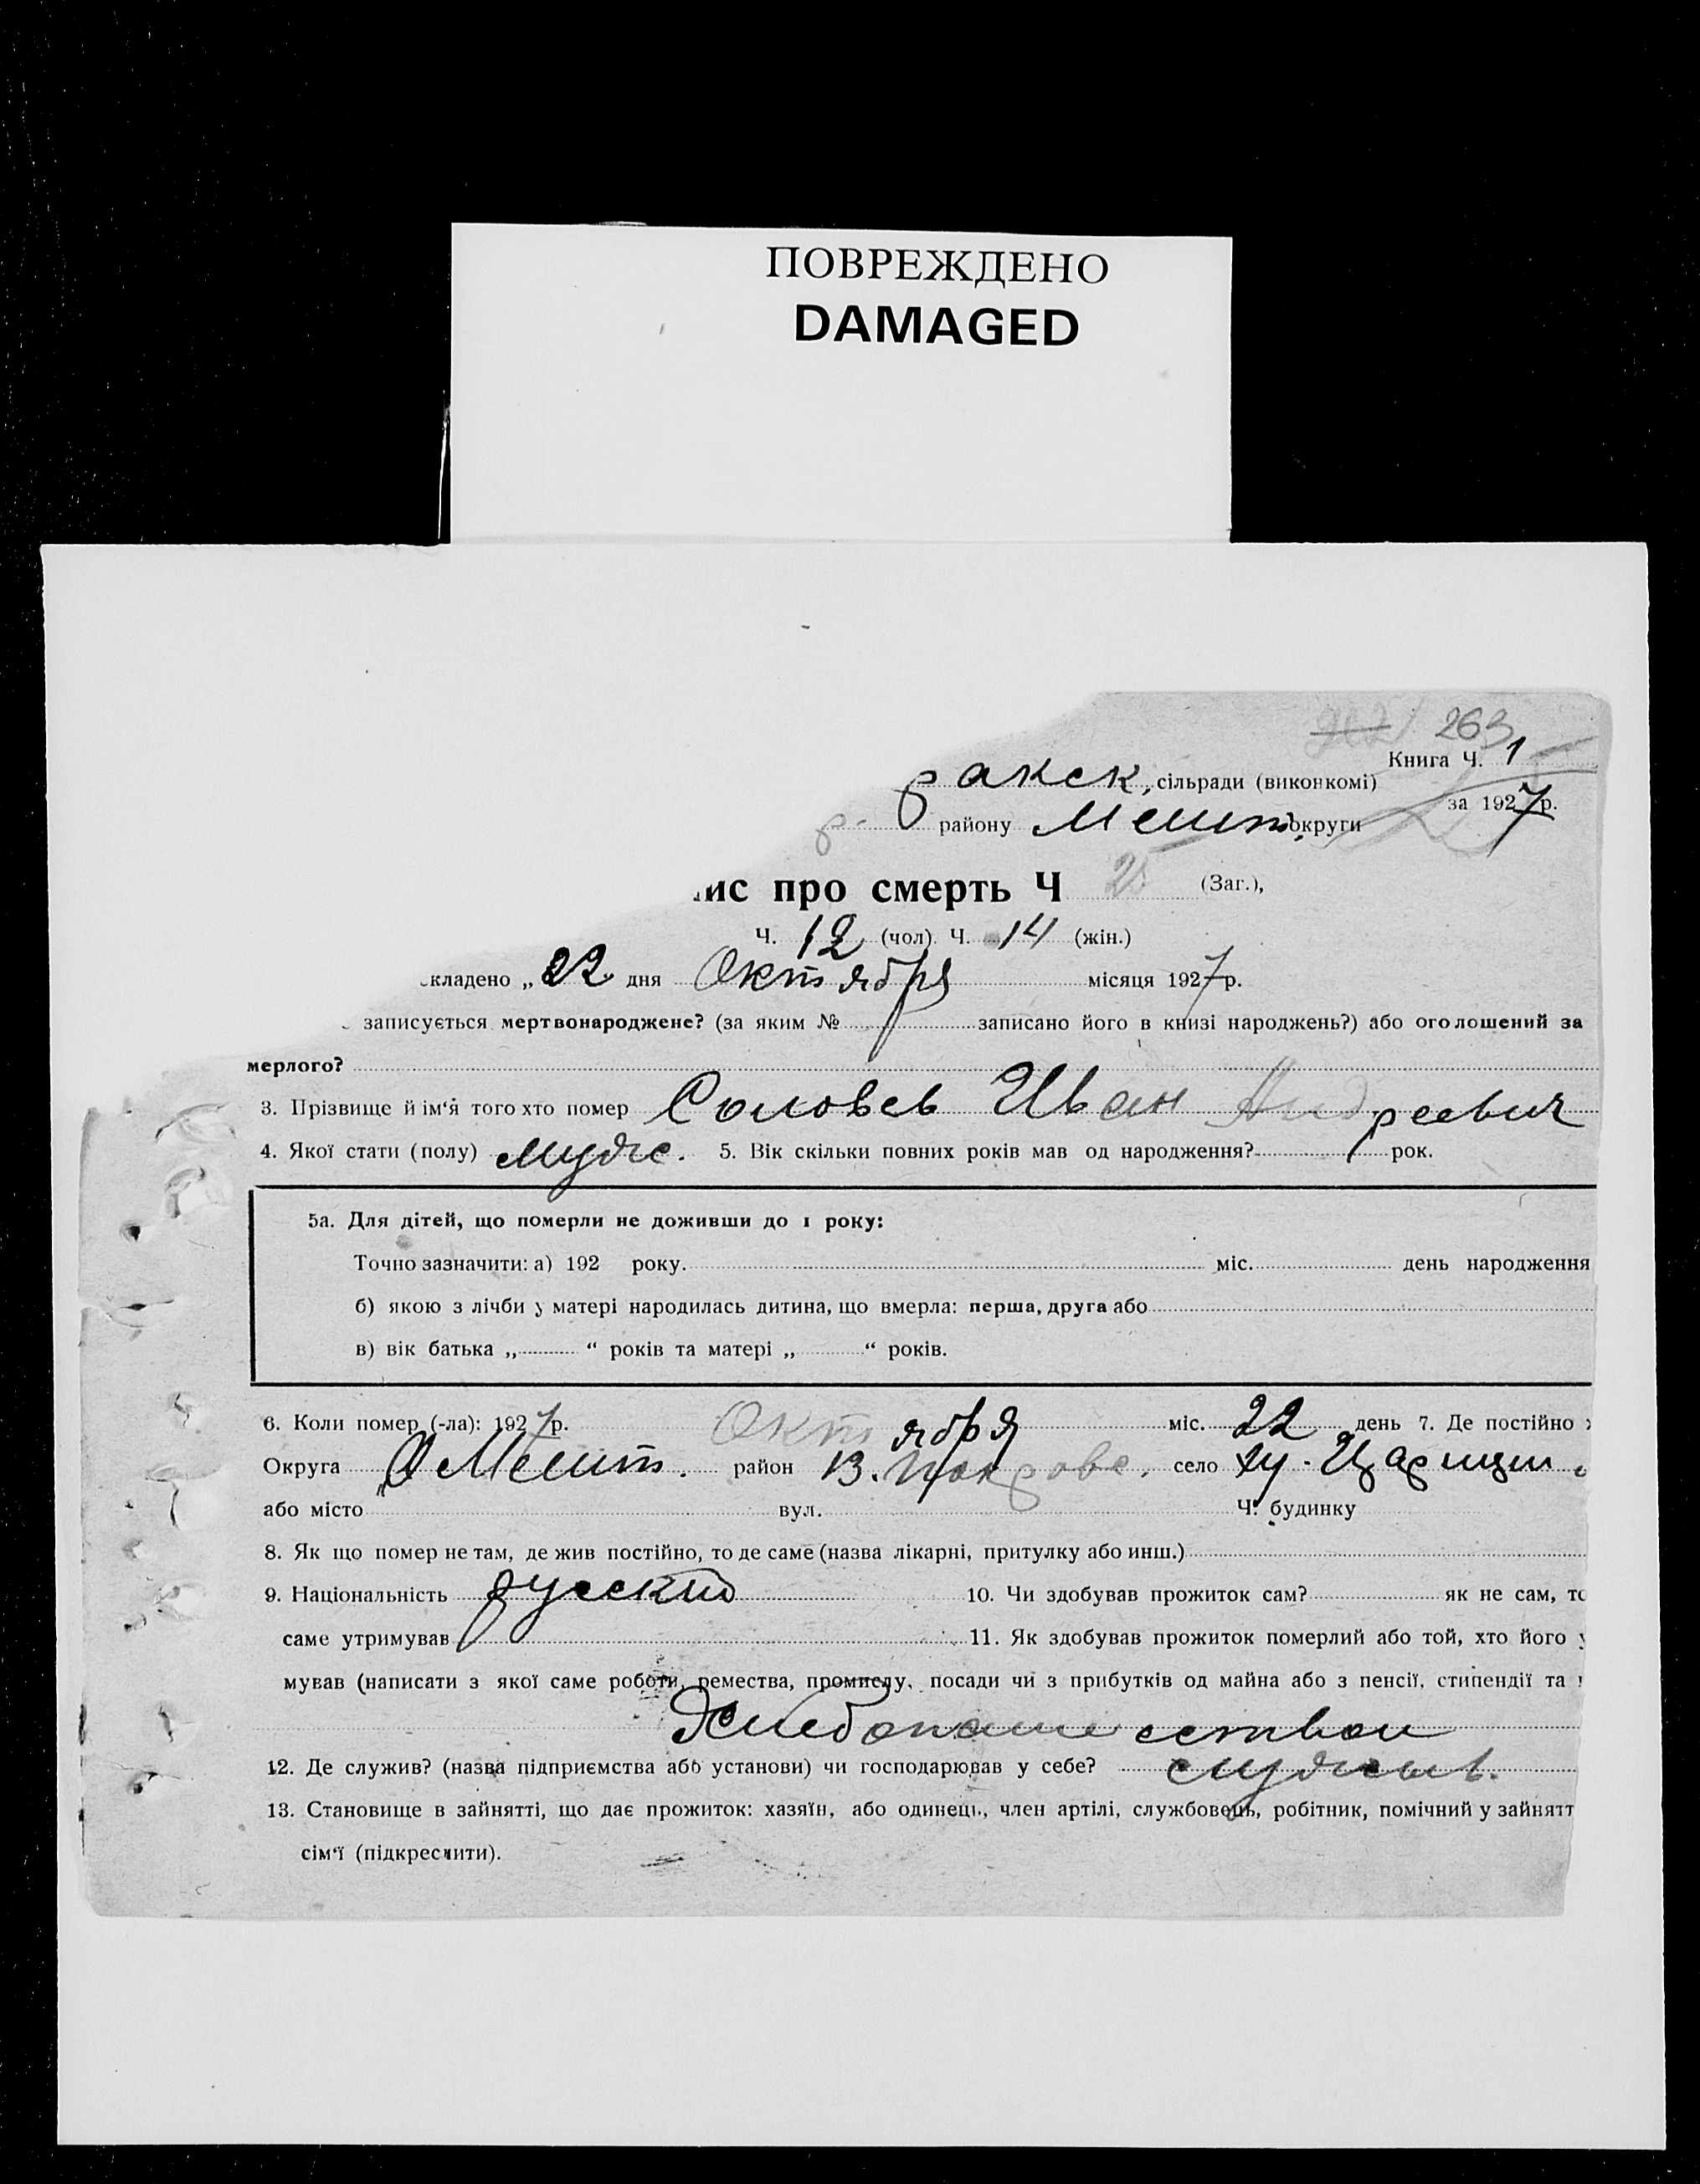 ПОВРЕЖДЕНО
DAMAGED
263
Книга Ч. 1
ракск, сільради (виконкомі)
за 1927 р.
р. району Мелит. округи
ис про смерть Ч 25 (Заг.),
Ч. 12 (чол). Ч. 14 (жін.)
кладено „ 22 дня Октября місяця 1927 р.
записується мертвонароджене? (за яким № записано його в книзі народжень?) або оголошений за
мерлого?
3. Прізвище й ім‘я того хто помер Соловев Иван Андреевич
4. Якої стати (полу) мужс. 5. Вік скільки повних років мав од народження? рок.
5а. Для дітей, що померли не доживши до 1 року:
Точно зазначити: а) 192 року. міс. день народження
б) якою з лічби у матері народилась дитина, що вмерла: перша, друга або
в) вік батька „ “ років та матері „ “ років.
6. Коли помер (-ла): 1927 р. Октября міс. 22 день 7. Де постійно
Округа Мелит. район В. Покровс. село ху. Царицин
або місто вул. Ч. будинку
8. Як що помер не там, де жив постійно, то де саме (назва лікарні, притулку або инш.)
9. Національність русский 10. Чи здобував прожиток сам? як не сам, то
саме утримував 11. Як здобував прожиток померлий або той, хто його у
мував (написати з якої саме роботи, ремества, промислу, посади чи з прибутків од майна або з пенсії, стипендії та
Хлебопашеством
12. Де служив? (назва підприємства або установи) чи господарював у себе?
13. Становище в зайнятті, що дає прожиток: хазяїн, або одинець, член артілі, службовець, робітник, помічний у зайнятт
сім‘ї (підкреслити).